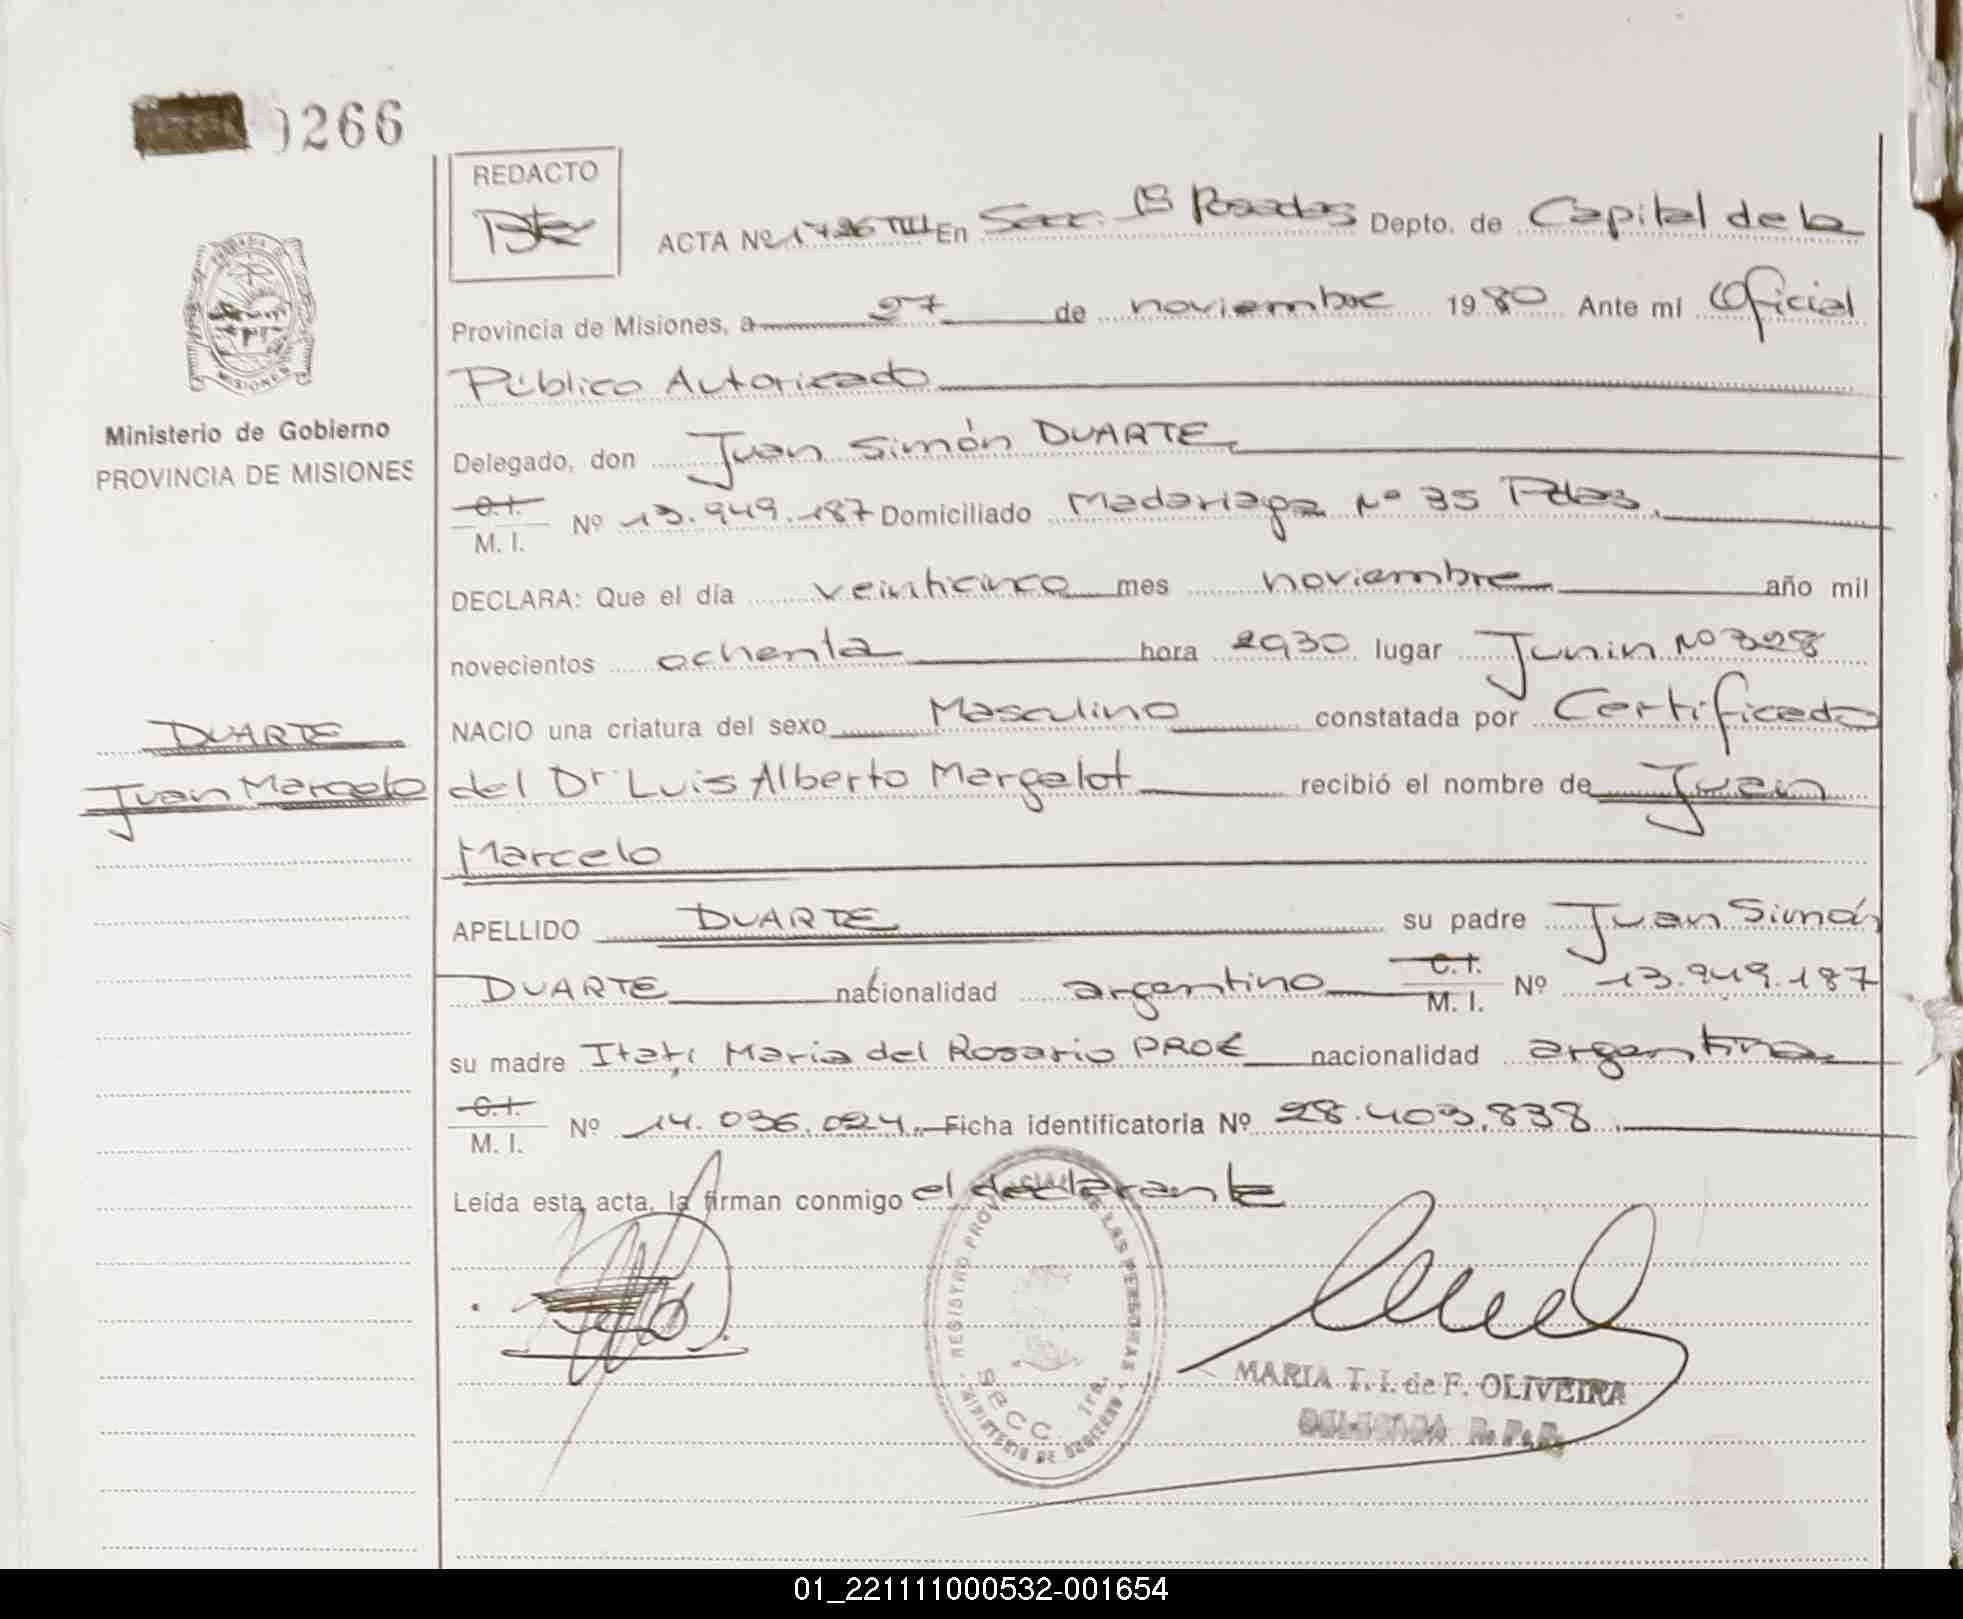 0266
REDACTO
ACTA Nº 1726 TIII En Secc. 1ª Posadas Depto. de Capital de la
Provincia de Misiones, a 27 de noviembre 1980 Ante mí Oficial
Público Autorizado
MISIONES
Ministerio de Gobierno
PROVINCIA DE MISIONES
Delegado, don Juan Simón DUARTE
C.I. M. I. Nº 13.949.187 Domiciliado Madariaga Nº 35 Pdas.
DECLARA: Que el día veinticinco mes noviembre año mil
novecientos ochenta hora 2930 lugar Junin Nº 328
NACIO una criatura del sexo Masculino constatada por Certificado
DUARTE
Juan Marcelo
del Dr Luis Alberto Margalot recibió el nombre de Juan
Marcelo
APELLIDO DUARTE su padre Juan Simón
DUARTE nacionalidad argentino C.I. M. I. Nº 13.949.187
su madre Itatí Maria del Rosario PROE nacionalidad argentina
C.I. M. I. Nº 14.036.024. Ficha identificatoria Nº 28.403.838.
Leída esta acta, la firman conmigo el declarante
REGISTRO PROVINCIAL DE LAS PERSONAS
SECC. 1ra.
MINISTERIO DE GOBIERNO
MARIA T. I. de F. OLIVEIRA
DELEGADA R. P. P.
01_221111000532-001654